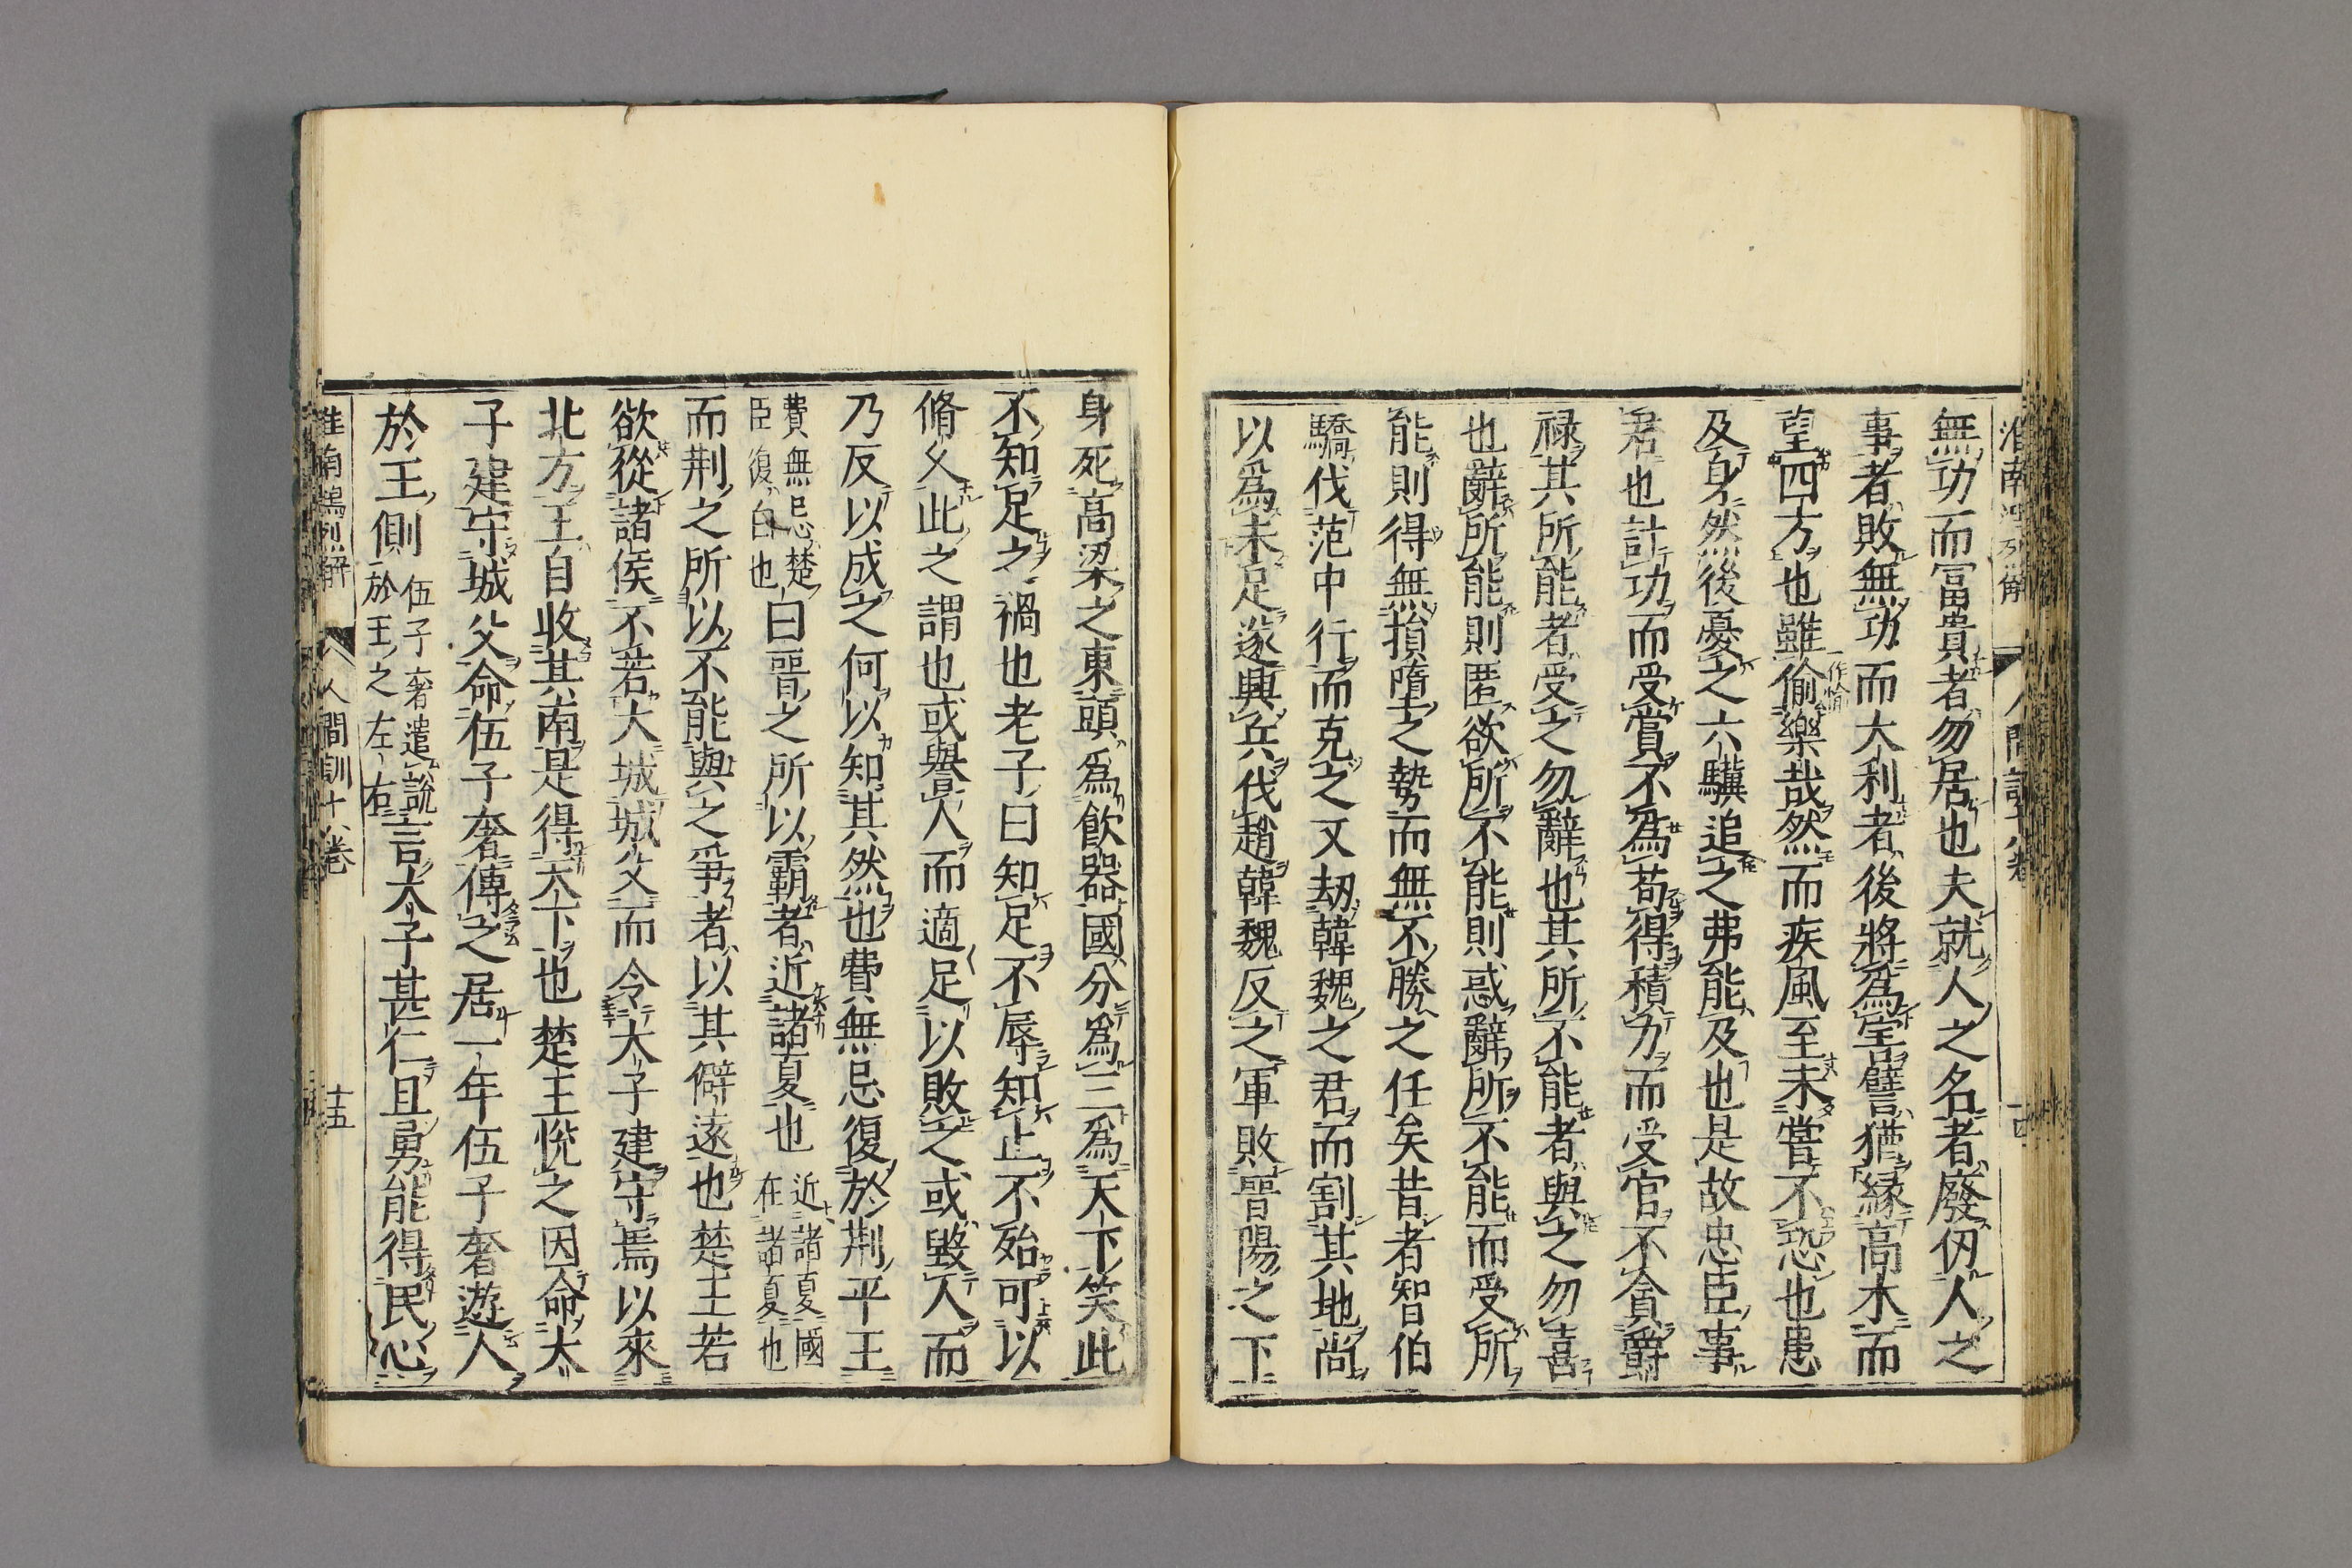 無功而富貴者勿居也夫就人之名者廢仭人之
事者敗無功而大利者後將爲害譬猶緣高木而
望四方也雖偷樂哉然而疾風至未嘗不恐也患
一作愉
及身然後憂之六驥追之弗能及也是故忠臣事
君也計功而受賞不爲苟得積力而受官不貪爵
祿其所能者受之勿辭也其所不能者與之勿喜
也辭所能則匿欲所不能則惑辭所不能而受所
能則得無損墮之勢而無不勝之任矣昔者智伯
驕伐范中行而克之又刼韓魏之君而割其地尚
以爲未足遂興兵伐趙韓魏反之軍敗晉陽之下
身死高梁之東頭爲飲器國分爲三爲天下笑此
不知足之禍也老子曰知足不辱知止不殆可以
脩乆此之謂也或譽人而適足以敗之或毀人而
乃反以成之何以知其然也費無忌復於荆平王
費無忌楚
臣復白也
曰晉之所以霸者近諸夏也
近諸夏國
在諸夏也
而荆之所以不能與之爭者以其僻遠也楚王若
欲從諸侯不若大城城父而令大子建守焉以來
北方王自收其南是得天下也楚王悅之因命大
子建守城父命伍子奢傅之居一年伍子奢遊人
於王側
伍子奢遣說
於王之左右
言太子甚仁且勇能得民心
淮南鴻烈解
人間訓十八卷
十五